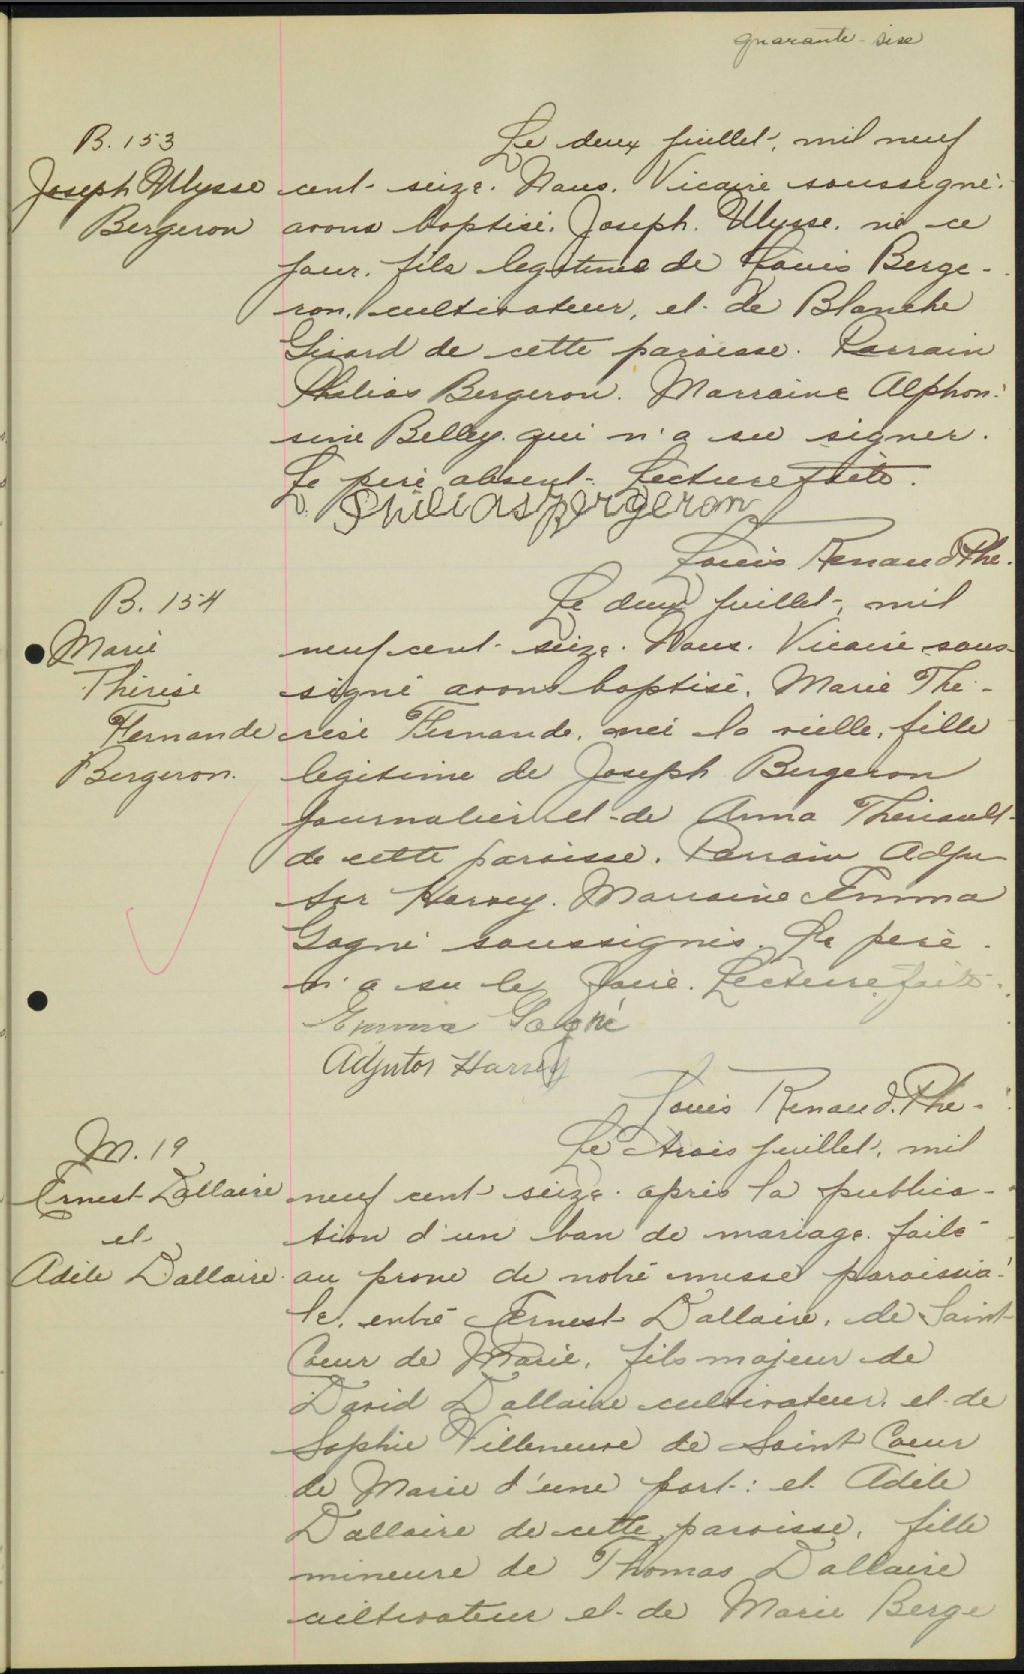 quarante-six
B. 153
Joseph Ulysse
Bergeron
Le deux juillet, mil neuf
cent seize. Nous, Vicaire soussigné,
avons baptisé, Joseph. Ulysse. né ce
jour. fils legitime de Louis Berge-
ron, cultivateur, et de Blanche
Girard de cette paroisse. Parrain
Philias Bergeron. Marraine Alphon-
sine Belley qui n'a su signer.
Le père absent. Lecture faite.
Philias Bergeron
Louis Renaud Ptre.
B. 154
Marie
Thérèse
Fernande
Bergeron.
Le deux juillet, mil
neuf cent seize. Nous. Vicaire sous-
signé avons baptisé, Marie Thé-
rèse Fernande, née la veille, fille
legitime de Joseph Bergeron
journalier et de Anna Theriault
de cette paroisse. Parrain Adju-
tor Harvey. Marraine Emma
Gagné soussignés. Le père
n'a su le faire. Lecture faite.
Emma Gagné
Adjutor Harvey
Louis Renaud. Ptre.
M. 19
Ernest Dallaire
et
Adèle Dallaire
Le trois juillet, mil
neuf cent seize. après la publica-
tion d'un ban de mariage faite
au prone de notre messe paroissia-
le, entre Ernest Dallaire, de Saint
Coeur de Marie, fils majeur de
David Dallaire cultivateur, et de
Sophie Villeneuve de Saint Coeur
de Marie d'une part: et Adèle
Dallaire de cette paroisse, fille
mineure de Thomas Dallaire
cultivateur et de Marie Berge